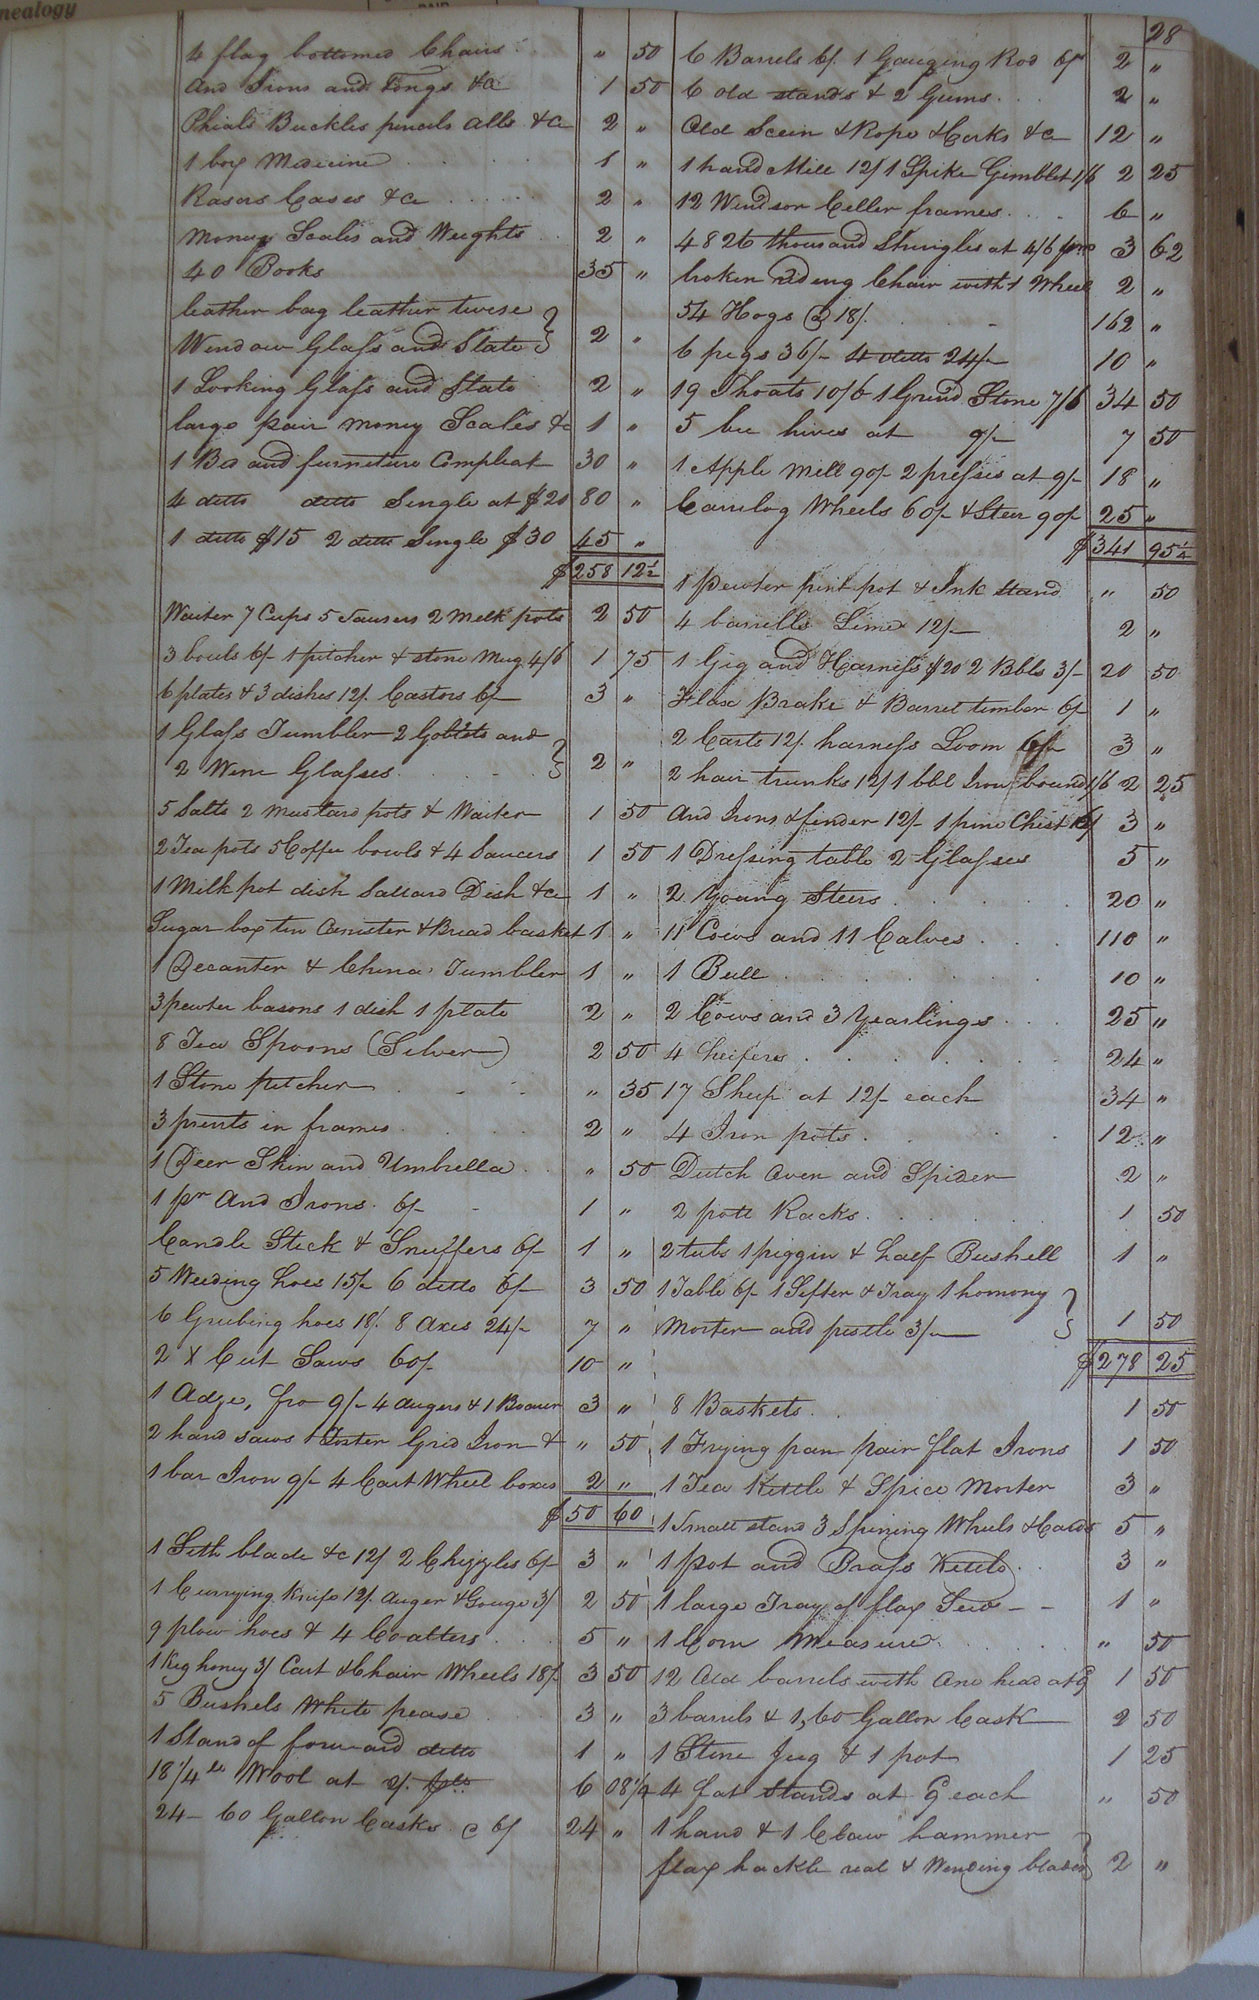 nealogy
28
4 flag bottomed Chairs " 50
And Irons and Tongs &c 1 50
Phials Buckles pencils alls &c 2 "
1 box Medicine 1 "
Rasors Cases &c 2 "
Money Scales and Weights 2 "
40 Books 35 "
leather bag leather
Window Glass and Slate 2 "
1 Looking Glass and Slate 2 "
large pair money Scales &c 1 "
1 Bed and furniture Compleat 30 "
4 ditto ditto Single at $20 80 "
1 ditto $15 2 ditto Single $30 45 "
$258 12½
Waiter 7 Cups 5 Sausers 2 Milk pots 2 50
3 bowls 6/- 1 pitcher & stone Mug 4/6 1 75
6 plates & 3 dishes 12/. Castors 6/- 3 "
1 Glass Tumbler 2 Goblets and
2 Wine Glasses 2 "
5 Salts 2 mustard pots & Waiter 1 50
2 Tea pots 5 Coffee bowls & 4 Saucers 1 50
1 Milk pot dish Sallard Dish &c 1 "
Sugar box tin Canister & Bread basket 1 "
1 Decanter & China Tumbler 1 "
3 pewter basons 1 dish 1 plate 2 "
8 Tea Spoons (Silver) 2 50
1 Stone pitcher " 35
3 prints in frames 2 "
1 Deer Skin and Umbrella " 50
1 pr And Irons 6/- 1 "
Candle Stick & Snuffers 6/- 1 "
5 Weeding hoes 15/- 6 ditto 6/- 3 50
6 Grubing hoes 18/. 8 Axes 24/- 7 "
2 X Cut Saws 60/ 10 "
1 Adze, fro 9/- 4 augers & 1 3 "
2 hand saws 1 Grid Iron & " 50
1 bar Iron 9/- 4 Cart Wheel boxes 2 "
$50 60
1 Sith blade &c 12/ 2 Chizzles 6/- 3 "
1 Currying Knife 12/. Auger & Gouge 3/ 2 50
9 plow hoes & 4 Coalters 5 "
1 Keg honey 3/ Cart & Chair Wheels 18/- 3 50
5 Bushels White pease 3 "
1 Stand of forward ditto 1 "
18¼ lb Wool at 2/. 6 08¼
24 - 60 Gallon Casks @ 6/ 24 "
6 Barrels 6/. 1 Gauging Rod 6/- 2 "
6 old stands & 2 Gums 2 "
Old Scein & Rope & Corks &c 12 "
1 hand Mill 12/ 1 Spike Gimblet 1/6 2 25
12 Windsor Celler frames 6 "
4826 thousand Shingles at 4/6 3 62
broken riding Chair with 1 Wheel 2 "
54 Hogs @ 18/. 162 "
6 pigs 36/- 4 ditto 24/- 10 "
19 Shoats 10/6 1 Grind Stone 7/6 34 50
5 bee hives at 9/- 7 50
1 Apple Mill 90/- 2 presses at 9/- 18 "
Carrilog Wheels 60/- & Steer 90/- 25 "
$341 95¼
1 pewter pint pot & Ink stand " 50
4 barrells Lime 12/- 2 "
1 Gig and Harness $20 2 Bbls 3/- 20 50
Flax Brake & Barrel timber 6/- 1 "
2 Carts 12/. harness Loom 6/- 3 "
2 hair trunks 12/ 1 bbl Iron bound 1/6 2 25
And Irons & finder 12/- 1 pine Chest 6/ 3 "
1 Dressing table 2 Glasses 5 "
2 Young Steers 20 "
11 Cows and 11 Calves 110 "
1 Bull 10 "
2 Cows and 3 Yearlings 25 "
4 heifers 24 "
17 Sheep at 12/- each 34 "
4 Iron pots 12 "
Dutch Oven and Spider 2 "
2 pott Racks 1 50
2 tubs 1 piggin & half Bushell 1 "
1 Table 6/- 1 Sifter & Tray 1 homony
Morter and pistle 3/- 1 50
$278 25
8 Baskets 1 50
1 Frying pan pair flat Irons 1 50
1 Tea Kettle & Spice Morter 3 "
1 Small stand 3 Spining Wheels & Cards 5 "
1 pot and Brass Kettle 3 "
1 large Tray of flax Seed 1 "
1 Corn Measure " 50
12 Old barrels with One head at 9 1 50
3 barrels & 1, 60 Gallon Cask 2 50
1 Stone Jug & 1 pot 1 25
4 fat Stands at 9 each " 50
1 hand & 1 Claw hammer
flax hackle real & Winding blades 2 "